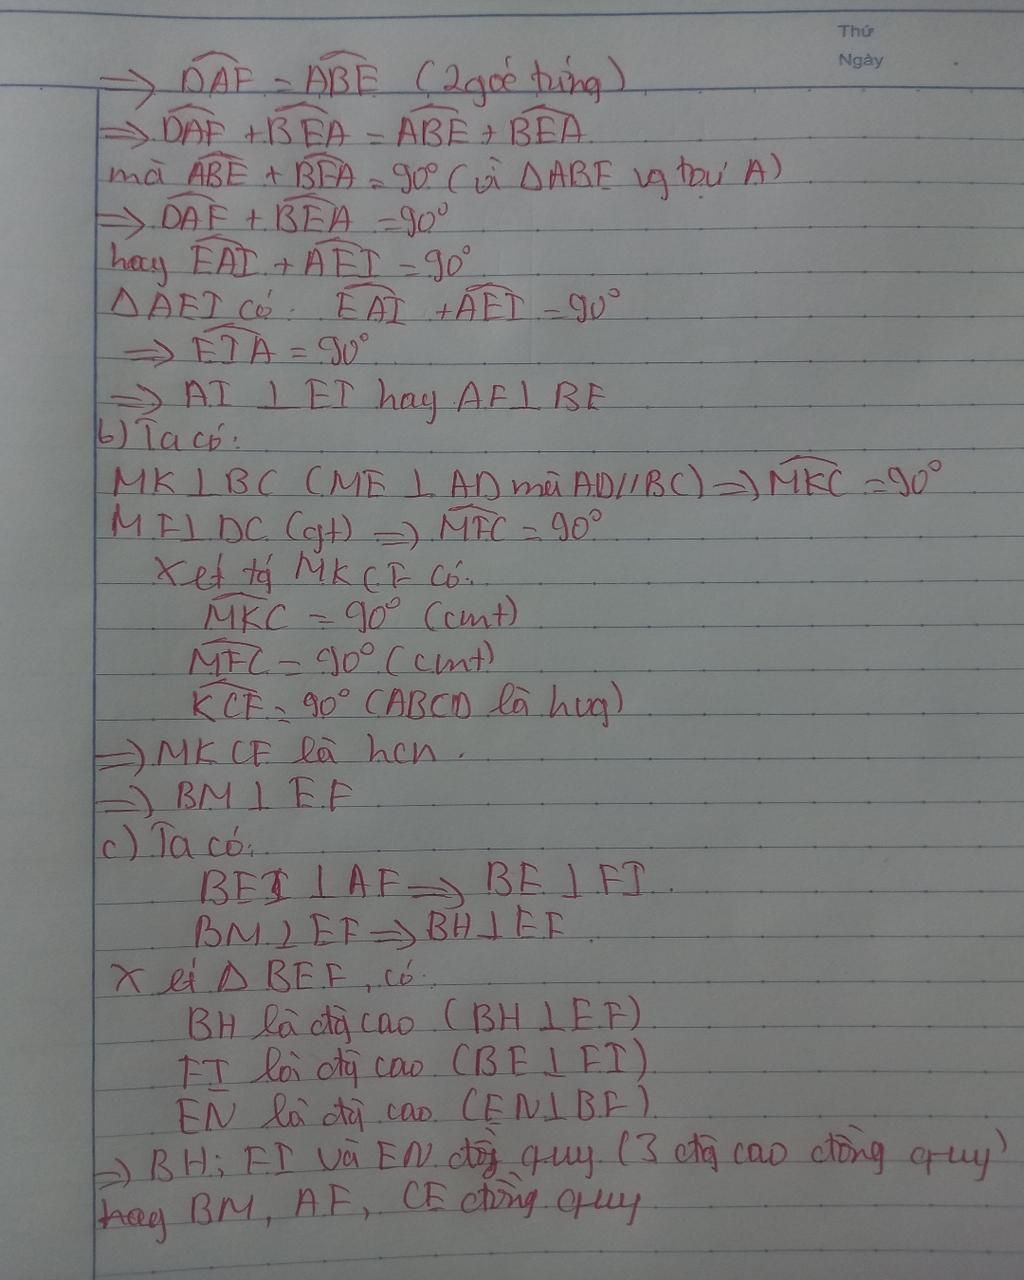 Thứ
Ngày
=> DAF = ABE (2 góc tứng)
=> DAF + BEA = ABE + BEA
mà ABE + BEA = 90° (vì ΔABE vg tại A)
=> DAF + BEA = 90°
hay EAI + AEI = 90°
ΔAEI có: EAI + AEI = 90°
=> EIA = 90°
=> AI ⊥ EI hay AF ⊥ BE
b) Ta có:
MK ⊥ BC (ME ⊥ AD mà AD // BC) => MKC = 90°
MF ⊥ DC (gt) => MFC = 90°
Xét tg MKCF có:
MKC = 90° (cmt)
MFC = 90° (cmt)
KCF = 90° (ABCD là hvg)
=> MKCF là hcn.
=> BM ⊥ EF
c) Ta có:
BE ⊥ AF => BE ⊥ FI
BM ⊥ EF => BH ⊥ EF
Xét Δ BEF, có:
BH là đg cao (BH ⊥ EF)
FI là đg cao (BE ⊥ FI)
EN là đg cao (EN ⊥ BF)
=> BH; FI và EN đồg quy (3 đg cao đồng quy)
hay BM, AF, CE đồng quy